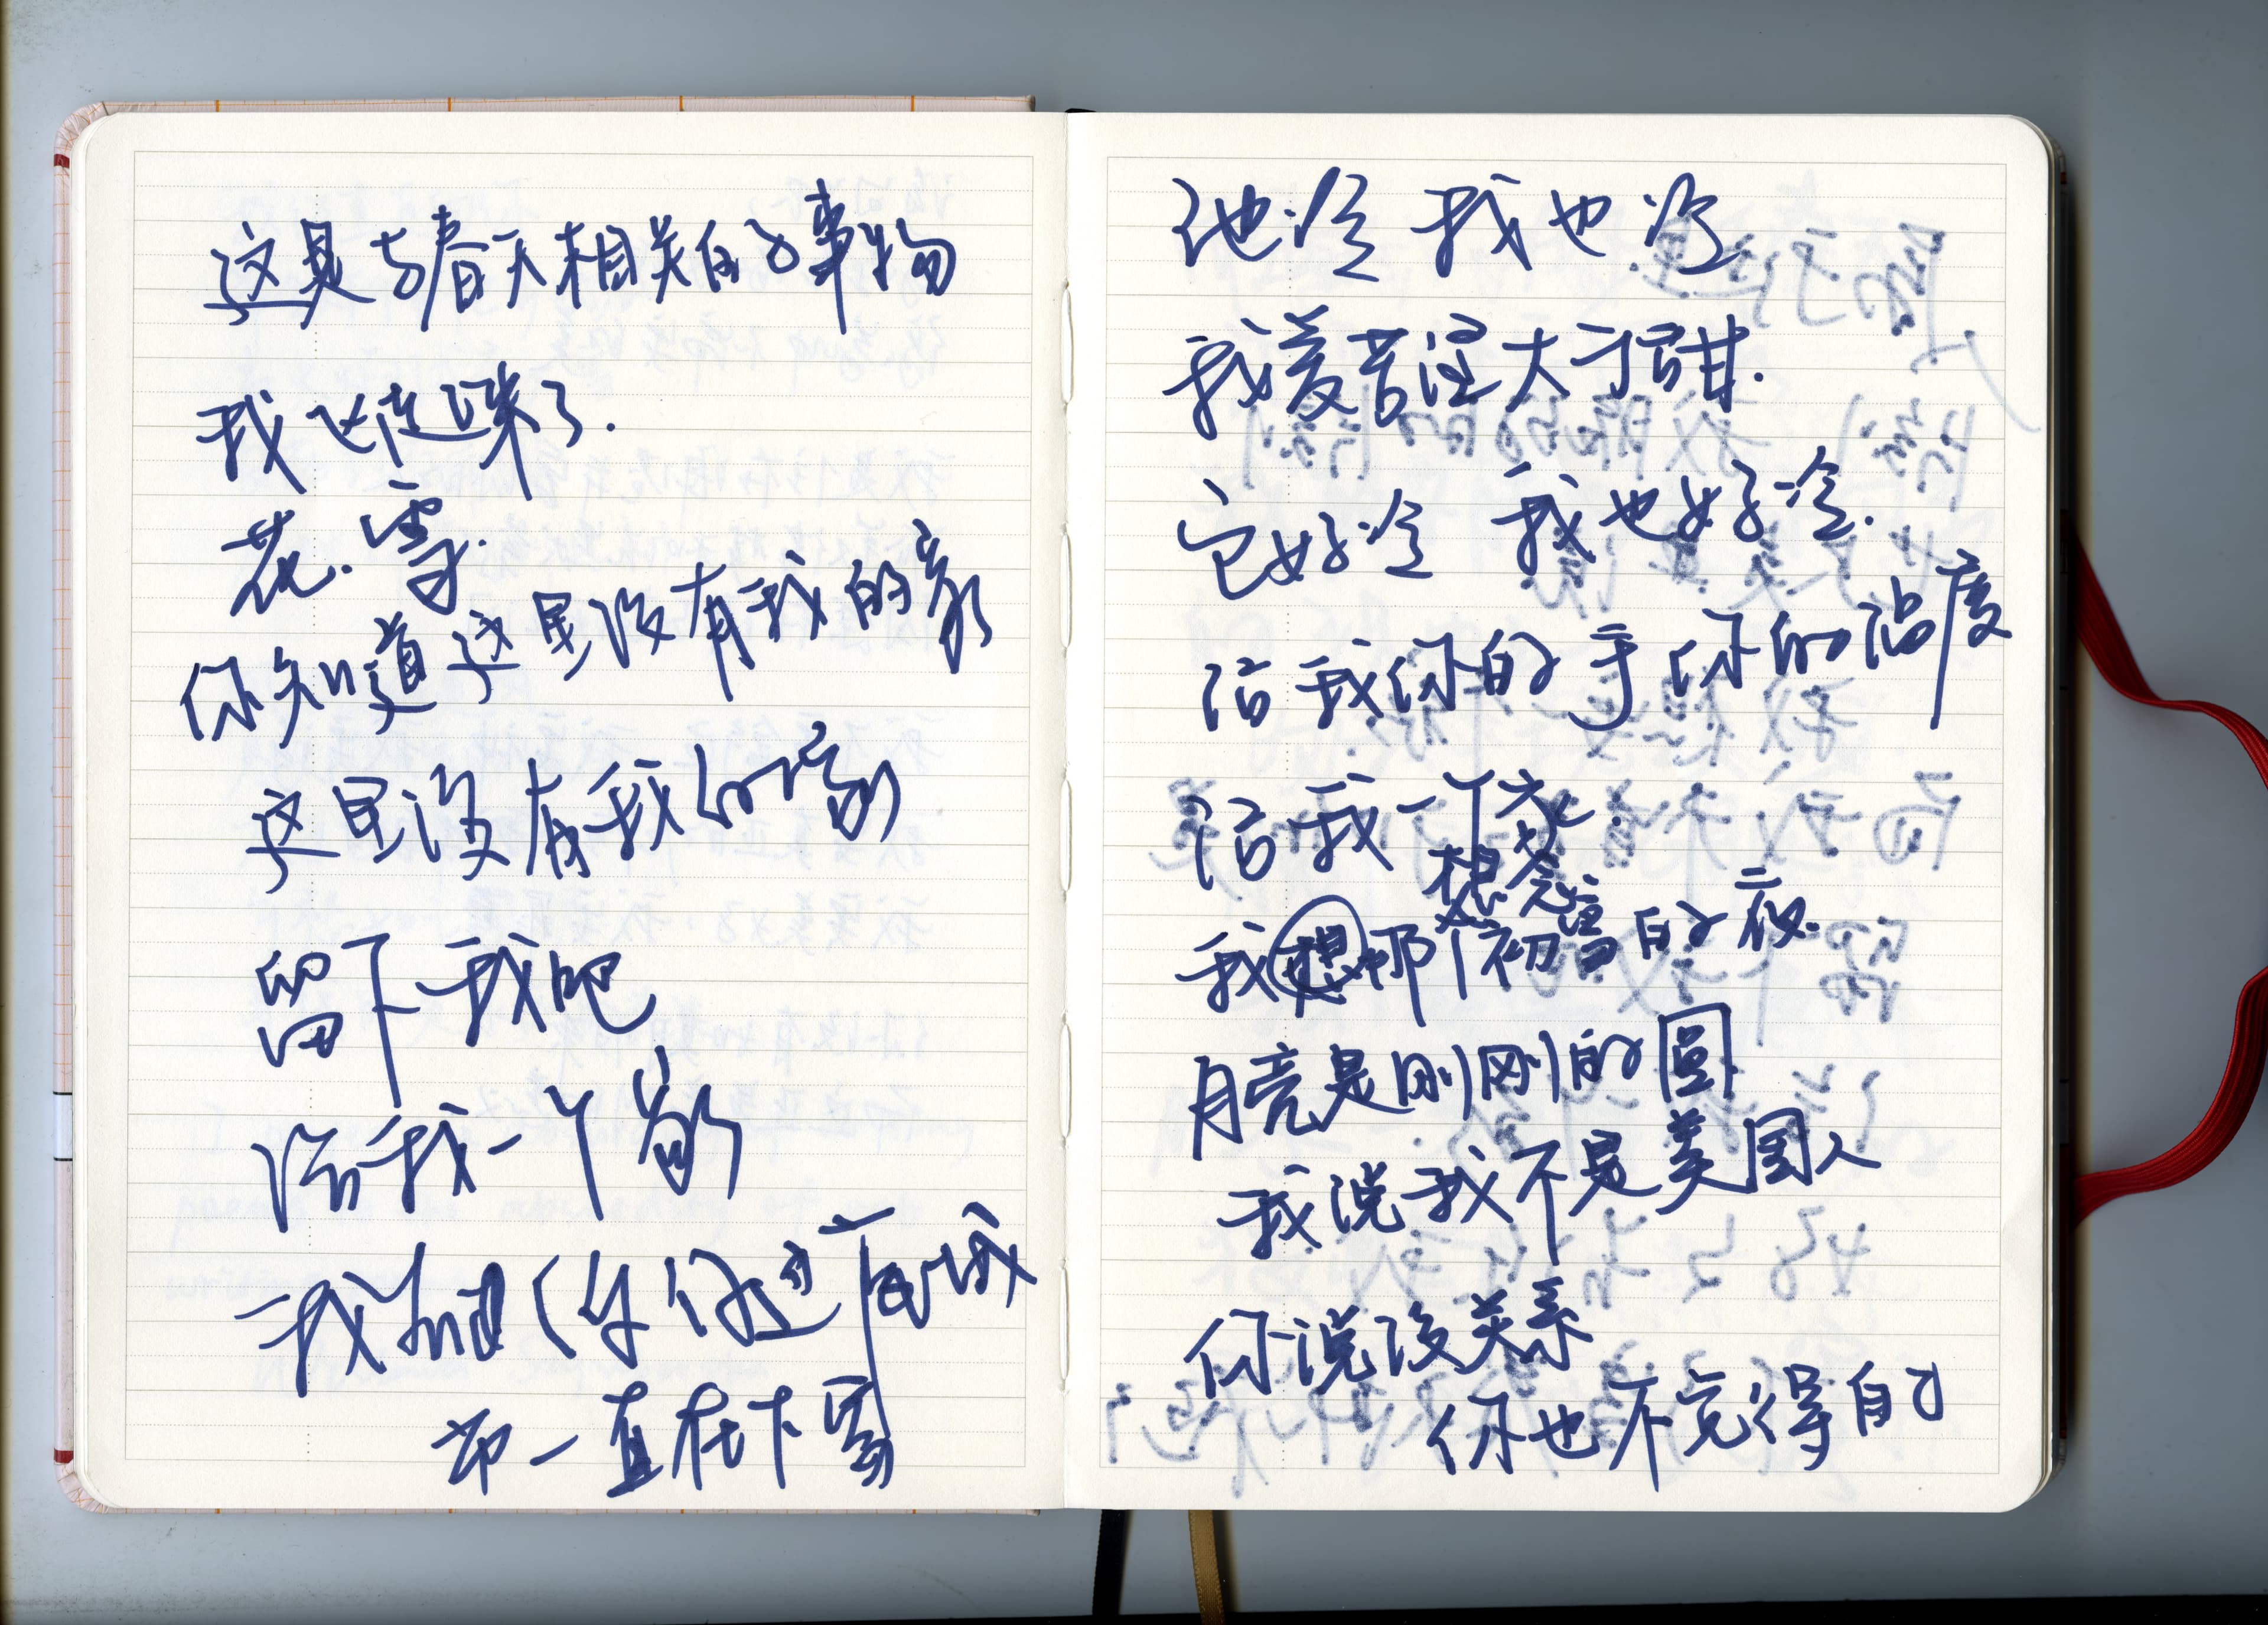 这是与春天相关的事物
我飞过来了.
花.雪.
你知道这里没有我的家
这里没有我的家
留下我吧
给我一个家
我
却一直在下雪
他冷 我也冷
我爱苦涩大于甜.
它好冷 我也好冷.
给我你的手 你的温度
给我一个花.
想念
我想那个初雪的夜.
月亮是刚刚的圆
我说我不是美国人
你说没关系
你也不觉得自己